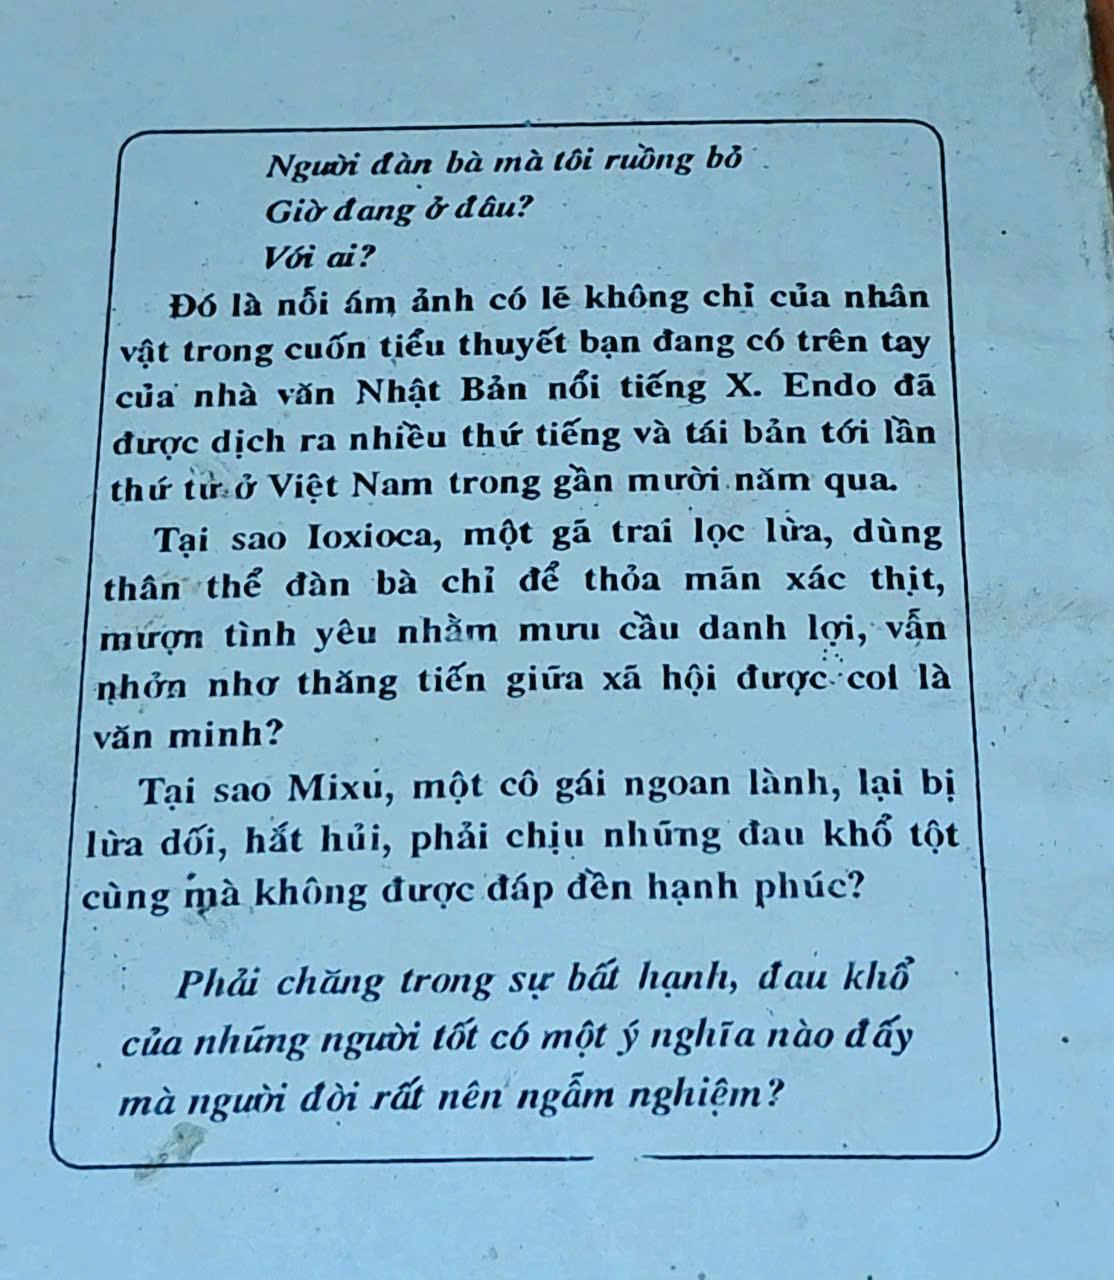 Người đàn bà mà tôi ruồng bỏ
Giờ đang ở đâu?
Với ai?
Đó là nỗi ám ảnh có lẽ không chỉ của nhân
vật trong cuốn tiểu thuyết bạn đang có trên tay
của nhà văn Nhật Bản nổi tiếng X. Endo đã
được dịch ra nhiều thứ tiếng và tái bản tới lần
thứ tư ở Việt Nam trong gần mười năm qua.
Tại sao Ioxioca, một gã trai lọc lừa, dùng
thân thể đàn bà chỉ để thỏa mãn xác thịt,
mượn tình yêu nhằm mưu cầu danh lợi, vẫn
nhởn nhơ thăng tiến giữa xã hội được coi là
văn minh?
Tại sao Mixu, một cô gái ngoan lành, lại bị
lừa dối, hắt hủi, phải chịu những đau khổ tột
cùng mà không được đáp đền hạnh phúc?
Phải chăng trong sự bất hạnh, đau khổ
của những người tốt có một ý nghĩa nào đấy
mà người đời rất nên ngẫm nghiệm?